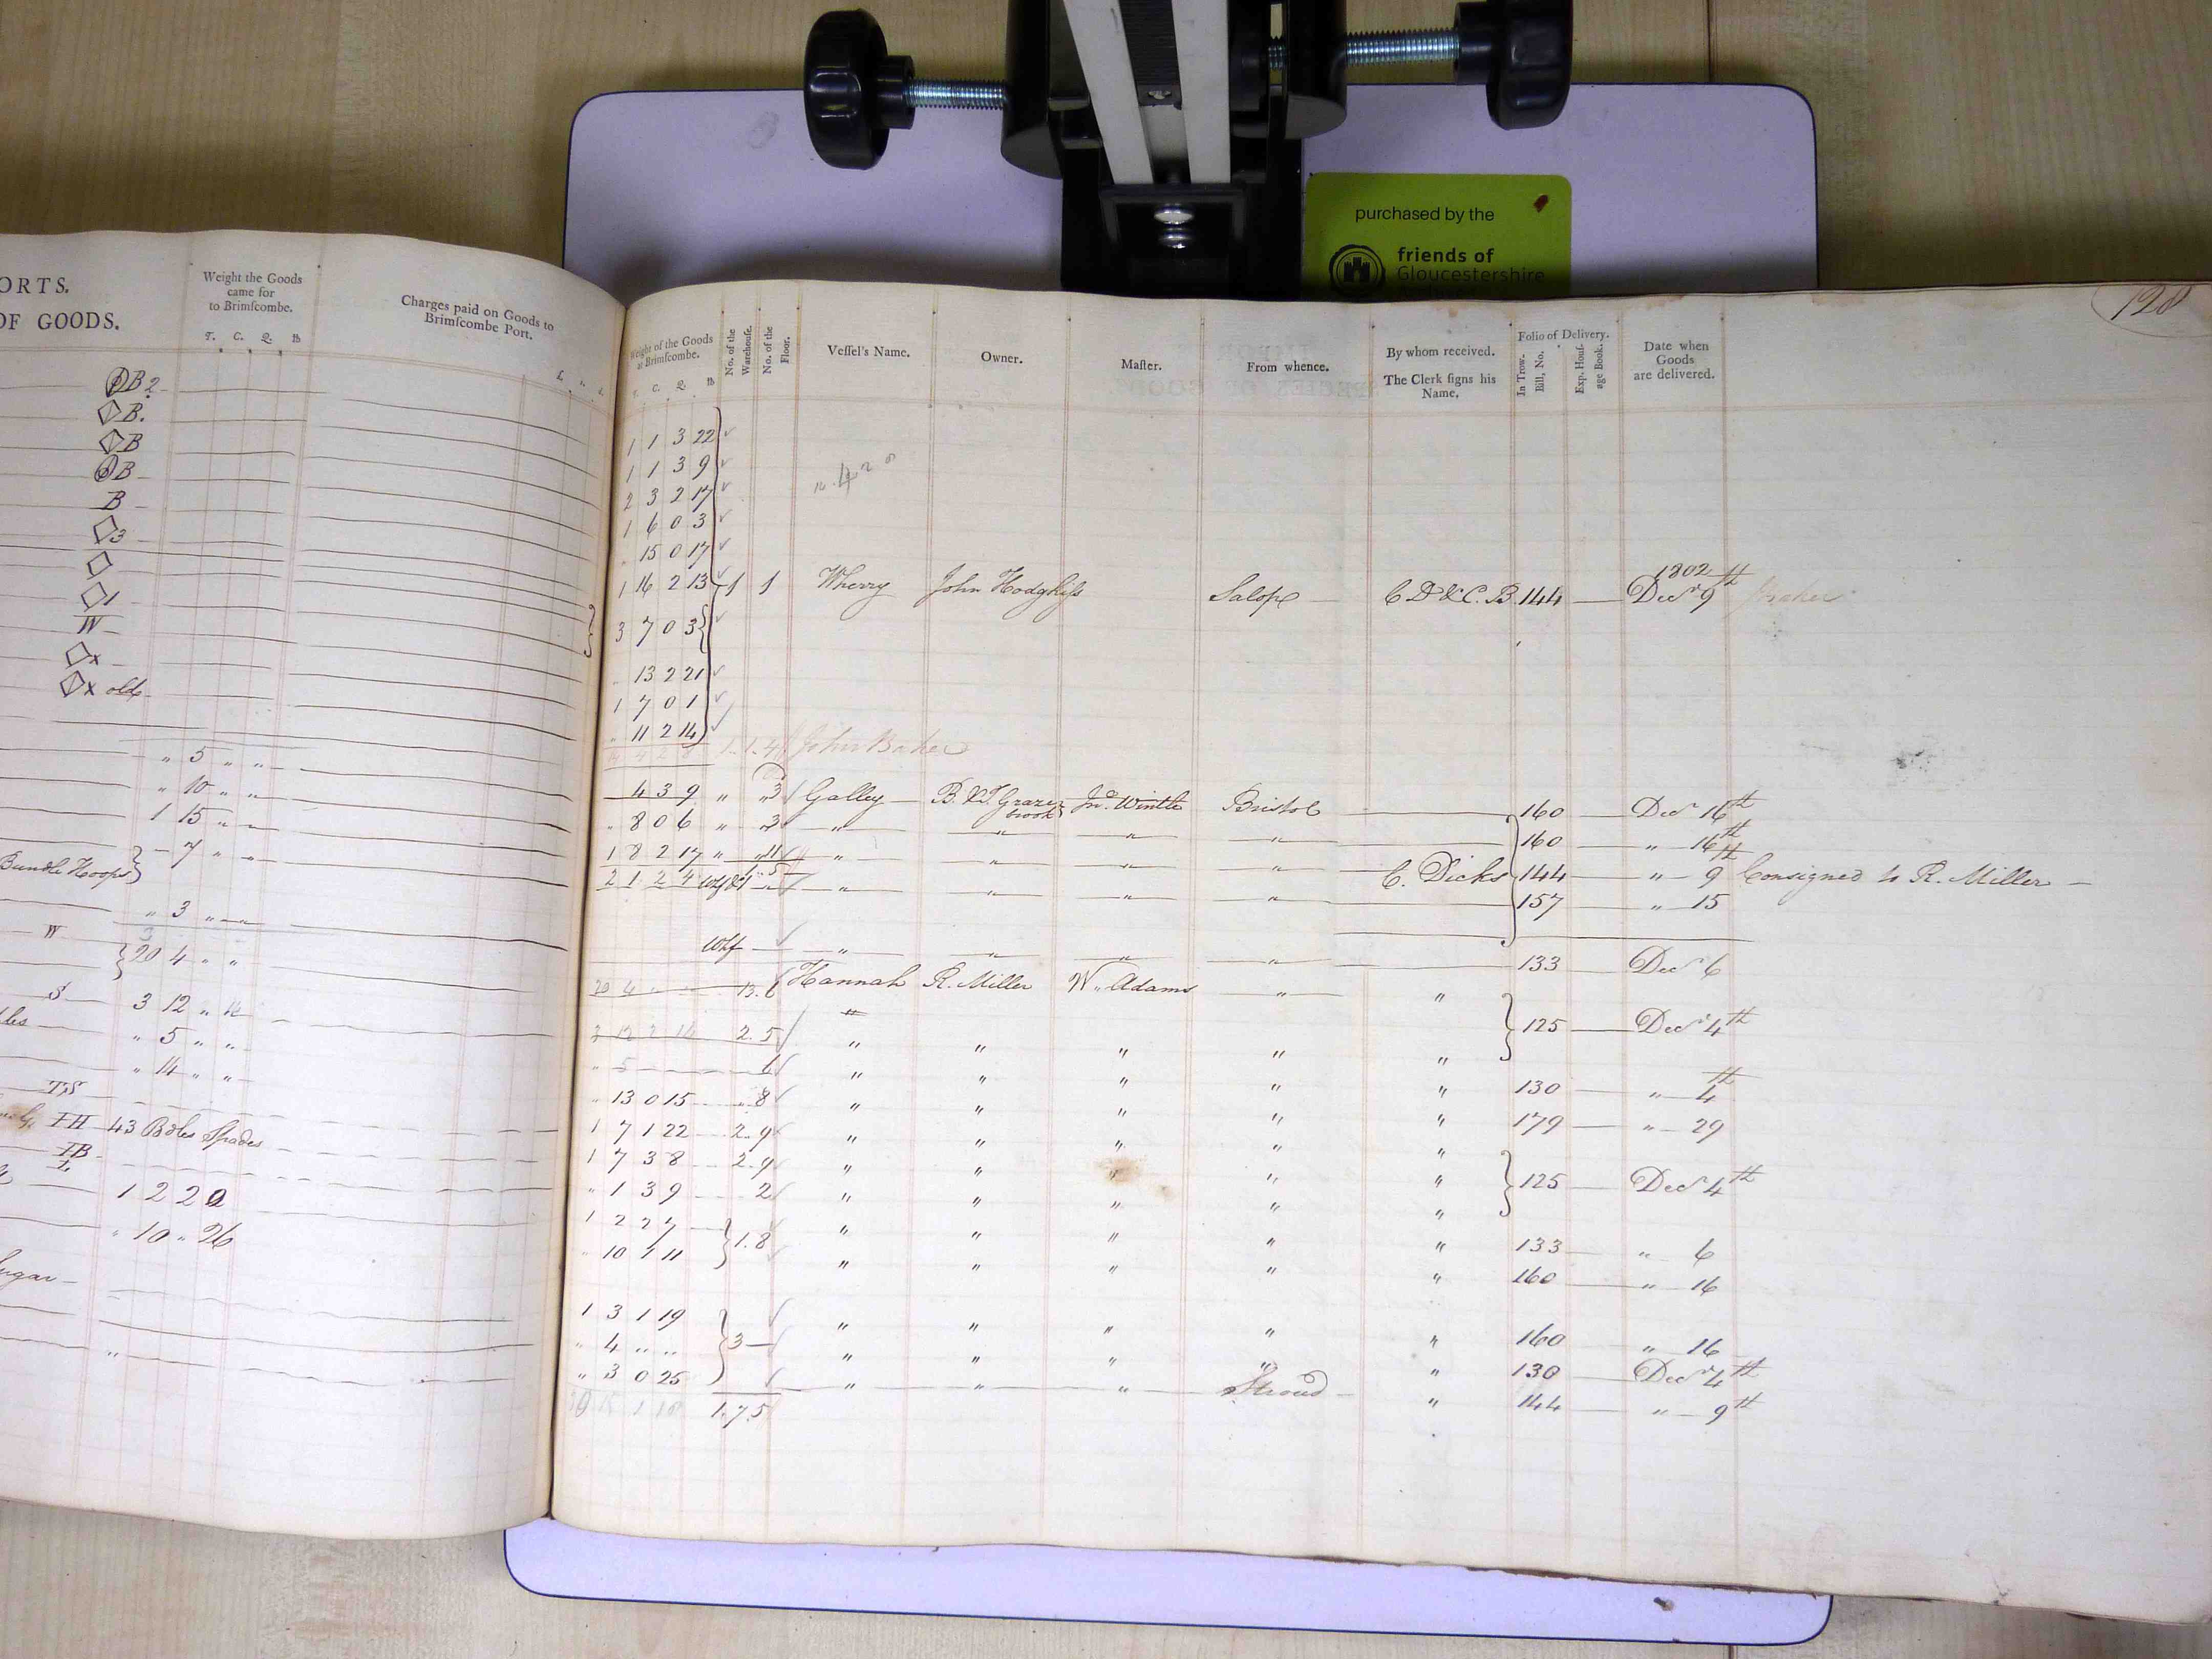 purchased by the
friends of
Gloucestershire
128
ORTS.
OF GOODS.
Weight the Goods
came for
to Brimſcombe.
T. C. Q. lb
Charges paid on Goods to
Brimſcombe Port.
B2
B.
B
B
B
3
1
W
x
x old
" 5 " "
" 10 " "
1 15 " "
7 " "
Bundle Hoops
" 3 " "
W
20 4 " "
S
3 12 " 14
" 5 " "
" 14 " "
TS
IH 43 Bdles Spades
IB
1 2 2 2
" 10 " 26
Sugar
Weight of the Goods
at Brimſcombe.
T. C. Q. lb
No. of the
Warehouſe.
No. of the
Floor.
Veſſel's Name.
Owner.
Maſter.
From whence.
By whom received.
The Clerk ſigns his
Name.
Folio of Delivery.
In Trow-
Bill, No.
Exp. Houſ-
age Book.
Date when
Goods
are delivered.
1 1 3 22
1 1 3 9
2 3 2 17
1 6 0 3
" 15 0 17
1802
1 16 2 13 1 1 Wherry John Hodgkiſs Salop C D & C. B 144 Decr 9th
3 7 0 3
" 13 2 21
1 7 0 1
" 11 2 14
John Baker
4 3 9 " 3 Galley B. & T. Grazebrook Jno. Wintle Bristol 160 Decr 16th
" 8 0 6 " 3 " " " " 160 " 16th
1 8 2 17 " " " " " C. Dicks 144 " 9th Consigned to R. Miller
2 1 2 4 Whf & 1 " " " " 157 " 15
Whf " " " " 133 Decr 6
20 4 " " 13. 6 Hannah R. Miller W. Adams " " 125 Decr 4th
2.5 " " " " "
" 5 6 " " " " " 130 " 4th
" 13 0 15 " 8 " " " " " 179 " 29
1 7 1 22 2. 9 " " " " "
1 7 3 8 2. 9 " " " " " 125 Decr 4th
" 1 3 9 2 " " " " "
1 2 2 7 1. 8 " " " " " 133 " 6
" 10 1 11 " " " " " 160 " 16
1 3 1 19 3 " " " " " 160 " 16
" 4 " " " " " " " 130 Decr 4th
" 3 0 25 " " " Stroud " 144 " 9th
1. 7. 5